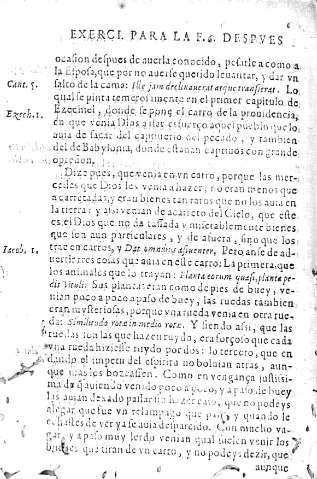 6
EXERCI. PARA LA F.6. DESPVES
ocasion despues de auerla conocido, pesarle a como a
la Esposa, que por no auerse querido leuantar, y dar vn
Cant. 5. salto de la cama: Ille jam declinauerat atque transierat. Lo
qual se pinta temerosamente en el primer capitulo de
Ezech. 1. Ezechiel, donde se pone el carro de la prouidencia,
en que venia Dios a dar esfuerço aquel pueblo que lo
auia de sacar del captiuerio del pecado, y tambien
del de Babylonia, donde estauan captiuos con grande
opresion.
Dize pues, que venia en vn carro, porque las mer-
cedes que Dios les venia a hazer, no eran menos que
a carretadas, y eran bienes tan raros que no los auia en
la tierra: y assi venian de acarreto del Cielo, que este
es el Dios que no da tassada y miserablemente bienes
que son aun particulares, y de afuera, sino que los
Iacob. 1. trae en carros, y Dat omnibus affluenter. Pero anse de ad-
uertir tres cosas que auia en este carro: La primera que
los animales que lo trayan: Planta eorum quasi planta pe-
dis vituli: Sus plantas eran como de pies de buey, ve-
nian poco a poco a paso de buey, las ruedas tambien
eran mysteriosas, porque vna rueda venia en otra rue-
da: Similitudo rotæ in medio rotæ. Y siendo assi, que las
ruedas son las que hazen ruydo, era forçoso que cada
vna rueda hiziesse ruydo por dos: lo tercero, que en
dando el impetu del espiritu no boluian atras, aun-
que mas les bozeassen. Como en vengança justissi-
ma de que auiendo venido poco a poco, y a paso de buey
las auian dexado passar sin hazer caso, que no podeys
alegar que fue vn relampago que passò, y quando le
echastes de ver ya se auia desparecido. Con mucho va-
gar, y a paso muy lerdo venian qual suelen venir los
bueyes que tiran de vn carro, y no podeys dezir, que
aunque